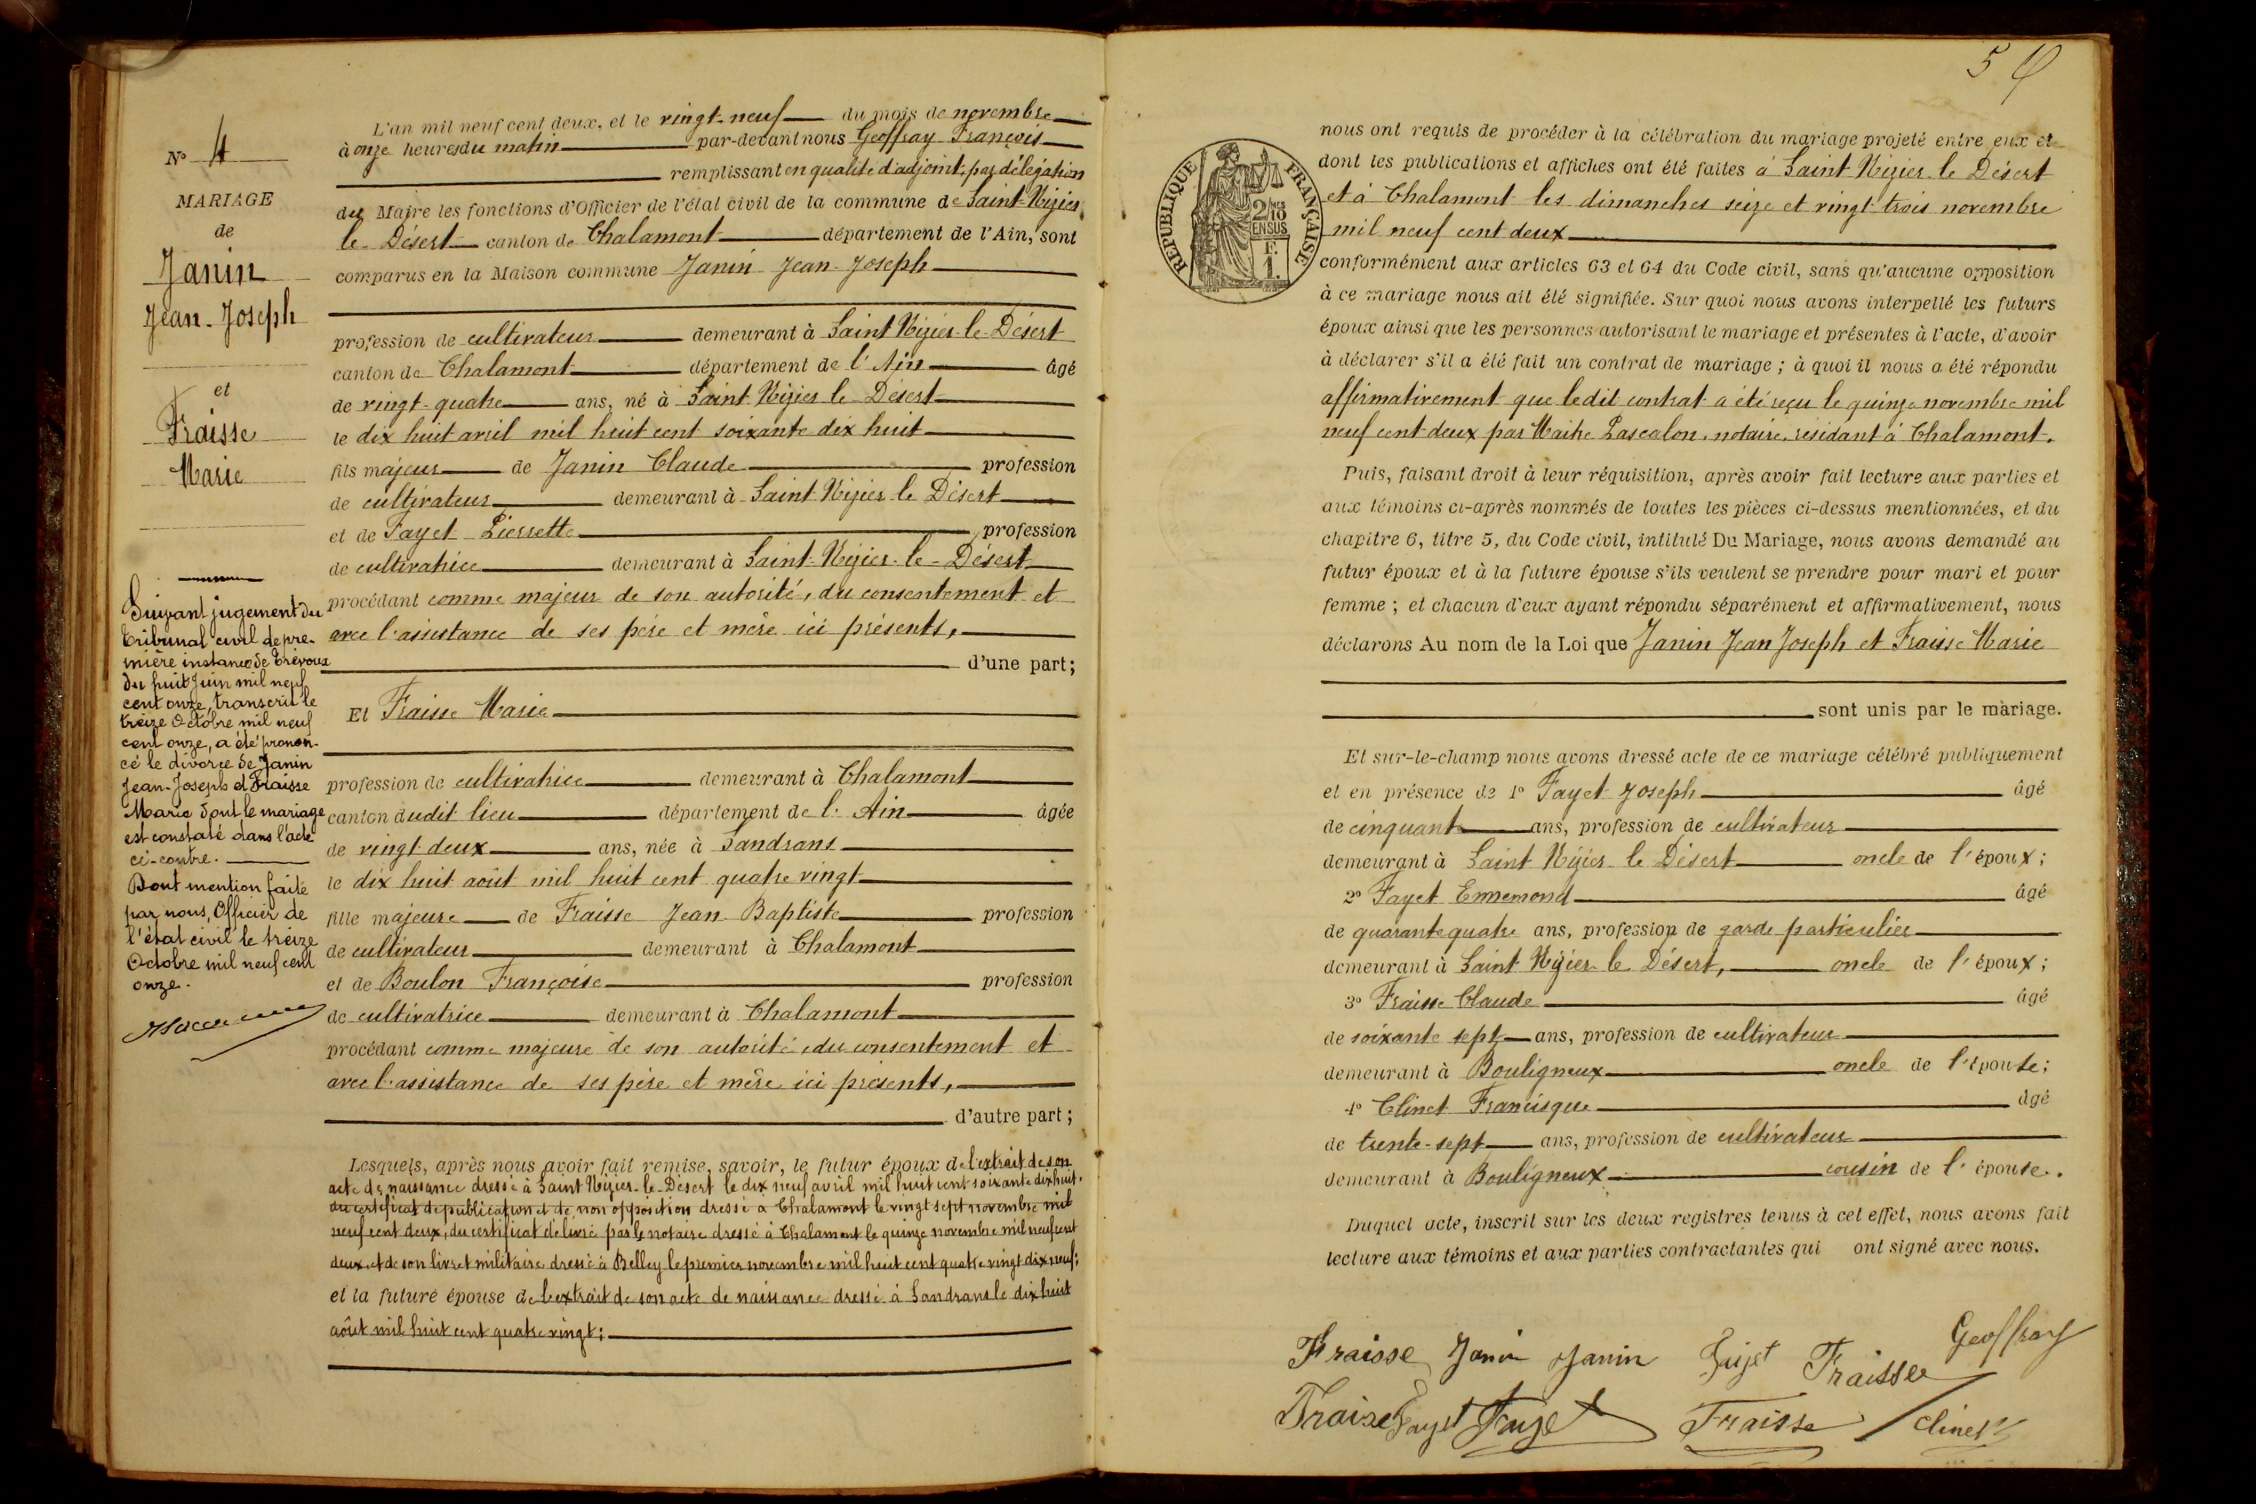 N° 4
MARIAGE
de
Janin
Jean-Joseph
et
Fraisse
Marie
Suivant jugement du
tribunal civil de pre-
mière instance de Trévoux
du huit Juin mil neuf
cent onze, transcrit le
treize Octobre mil neuf
cent onze, a été pronon-
cé le divorce de Janin
Jean-Joseph et Fraisse
Marie dont le mariage
est constaté dans l'acte
ci-contre.
Dont mention faite
par nous, Officier de
l'état civil le treize
Octobre mil neuf cent
onze.
L'an mil neuf cent deux, et le vingt-neuf du mois de novembre
à onze heures du matin par-devant nous Geoffray François
remplissant en qualité d'adjoint, par délégation
du Maire les fonctions d'Officier de l'état civil de la commune de Saint-Nizier
le-Désert canton de Chalamont département de l'Ain, sont
comparus en la Maison commune Janin Jean-Joseph
profession de cultivateur demeurant à Saint Nizier-le-Désert
canton de Chalamont département de l'Ain âgé
de vingt-quatre ans, né à Saint Nizier le Désert
le dix huit avril mil huit cent soixante dix huit
fils majeur de Janin Claude profession
de cultivateur demeurant à Saint-Nizier le Désert
et de Fayet Pierrette profession
de cultivatrice demeurant à Saint-Nizier-le-Désert
procédant comme majeur de son autorité, du consentement et
avec l'assistance de ses père et mère ici présents,
d'une part;
Et Fraisse Marie
profession de cultivatrice demeurant à Chalamont
canton dudit lieu département de l'Ain âgée
de vingt deux ans, née à Sandrans
le dix huit août mil huit cent quatre vingt
fille majeure de Fraisse Jean-Baptiste profession
de cultivateur demeurant à Chalamont
et de Boulon Françoise profession
de cultivatrice demeurant à Chalamont
procédant comme majeure de son autorité, du consentement et
avec l'assistance de ses père et mère ici présents,
d'autre part;
Lesquels, après nous avoir fait remise, savoir, le futur époux de l'extrait de son
acte de naissance dressé à Saint Nizier-le-Désert le dix neuf avril mil huit cent soixante dix huit,
du certificat de publication et de non opposition dressé à Chalamont le vingt sept novembre mil
neuf cent deux, du certificat délivré par le notaire dressé à Chalamont le quinze novembre mil neuf cent
deux, et de son livret militaire dressé à Belley le premier novembre mil huit cent quatre vingt dix neuf;
et la future épouse de l'extrait de son acte de naissance dressé à Sandrans le dix huit
août mil huit cent quatre vingt;
5
RÉPUBLIQUE FRANÇAISE
2/10
EN SUS
F.
1.
nous ont requis de procéder à la célébration du mariage projeté entre eux et
dont les publications et affiches ont été faites à Saint Nizier-le Désert
et à Chalamont les dimanches seize et vingt-trois novembre
mil neuf cent deux
conformément aux articles 63 et 64 du Code civil, sans qu'aucune opposition
à ce mariage nous ait été signifiée. Sur quoi nous avons interpellé les futurs
époux ainsi que les personnes autorisant le mariage et présentes à l'acte, d'avoir
à déclarer s'il a été fait un contrat de mariage; à quoi il nous a été répondu
affirmativement que ledit contrat a été reçu le quinze novembre mil
neuf cent deux par Maître Pascalon, notaire, résidant à Chalamont.
Puis, faisant droit à leur réquisition, après avoir fait lecture aux parties et
aux témoins ci-après nommés de toutes les pièces ci-dessus mentionnées, et du
chapitre 6, titre 5, du Code civil, intitulé Du Mariage, nous avons demandé au
futur époux et à la future épouse s'ils veulent se prendre pour mari et pour
femme; et chacun d'eux ayant répondu séparément et affirmativement, nous
déclarons Au nom de la Loi que Janin Jean Joseph et Fraisse Marie
sont unis par le mariage.
Et sur-le-champ nous avons dressé acte de ce mariage célébré publiquement
et en présence de 1° Fayet Joseph âgé
de cinquante ans, profession de cultivateur
demeurant à Saint Nizier-le Désert oncle de l'époux;
2° Fayet Ennemond âgé
de quarante quatre ans, profession de garde particulier
demeurant à Saint Nizier-le Désert, oncle de l'époux;
3° Fraisse Claude âgé
de soixante sept ans, profession de cultivateur
demeurant à Bouligneux oncle de l'épouse;
4° Clinet Francisque âgé
de trente-sept ans, profession de cultivateur
demeurant à Bouligneux cousin de l'épouse.
Duquel acte, inscrit sur les deux registres tenus à cet effet, nous avons fait
lecture aux témoins et aux parties contractantes qui ont signé avec nous.
Fraisse Janin Janin Fayet Fraisse Geoffray
Fraisse Fayet Fayet Fraisse Clinet